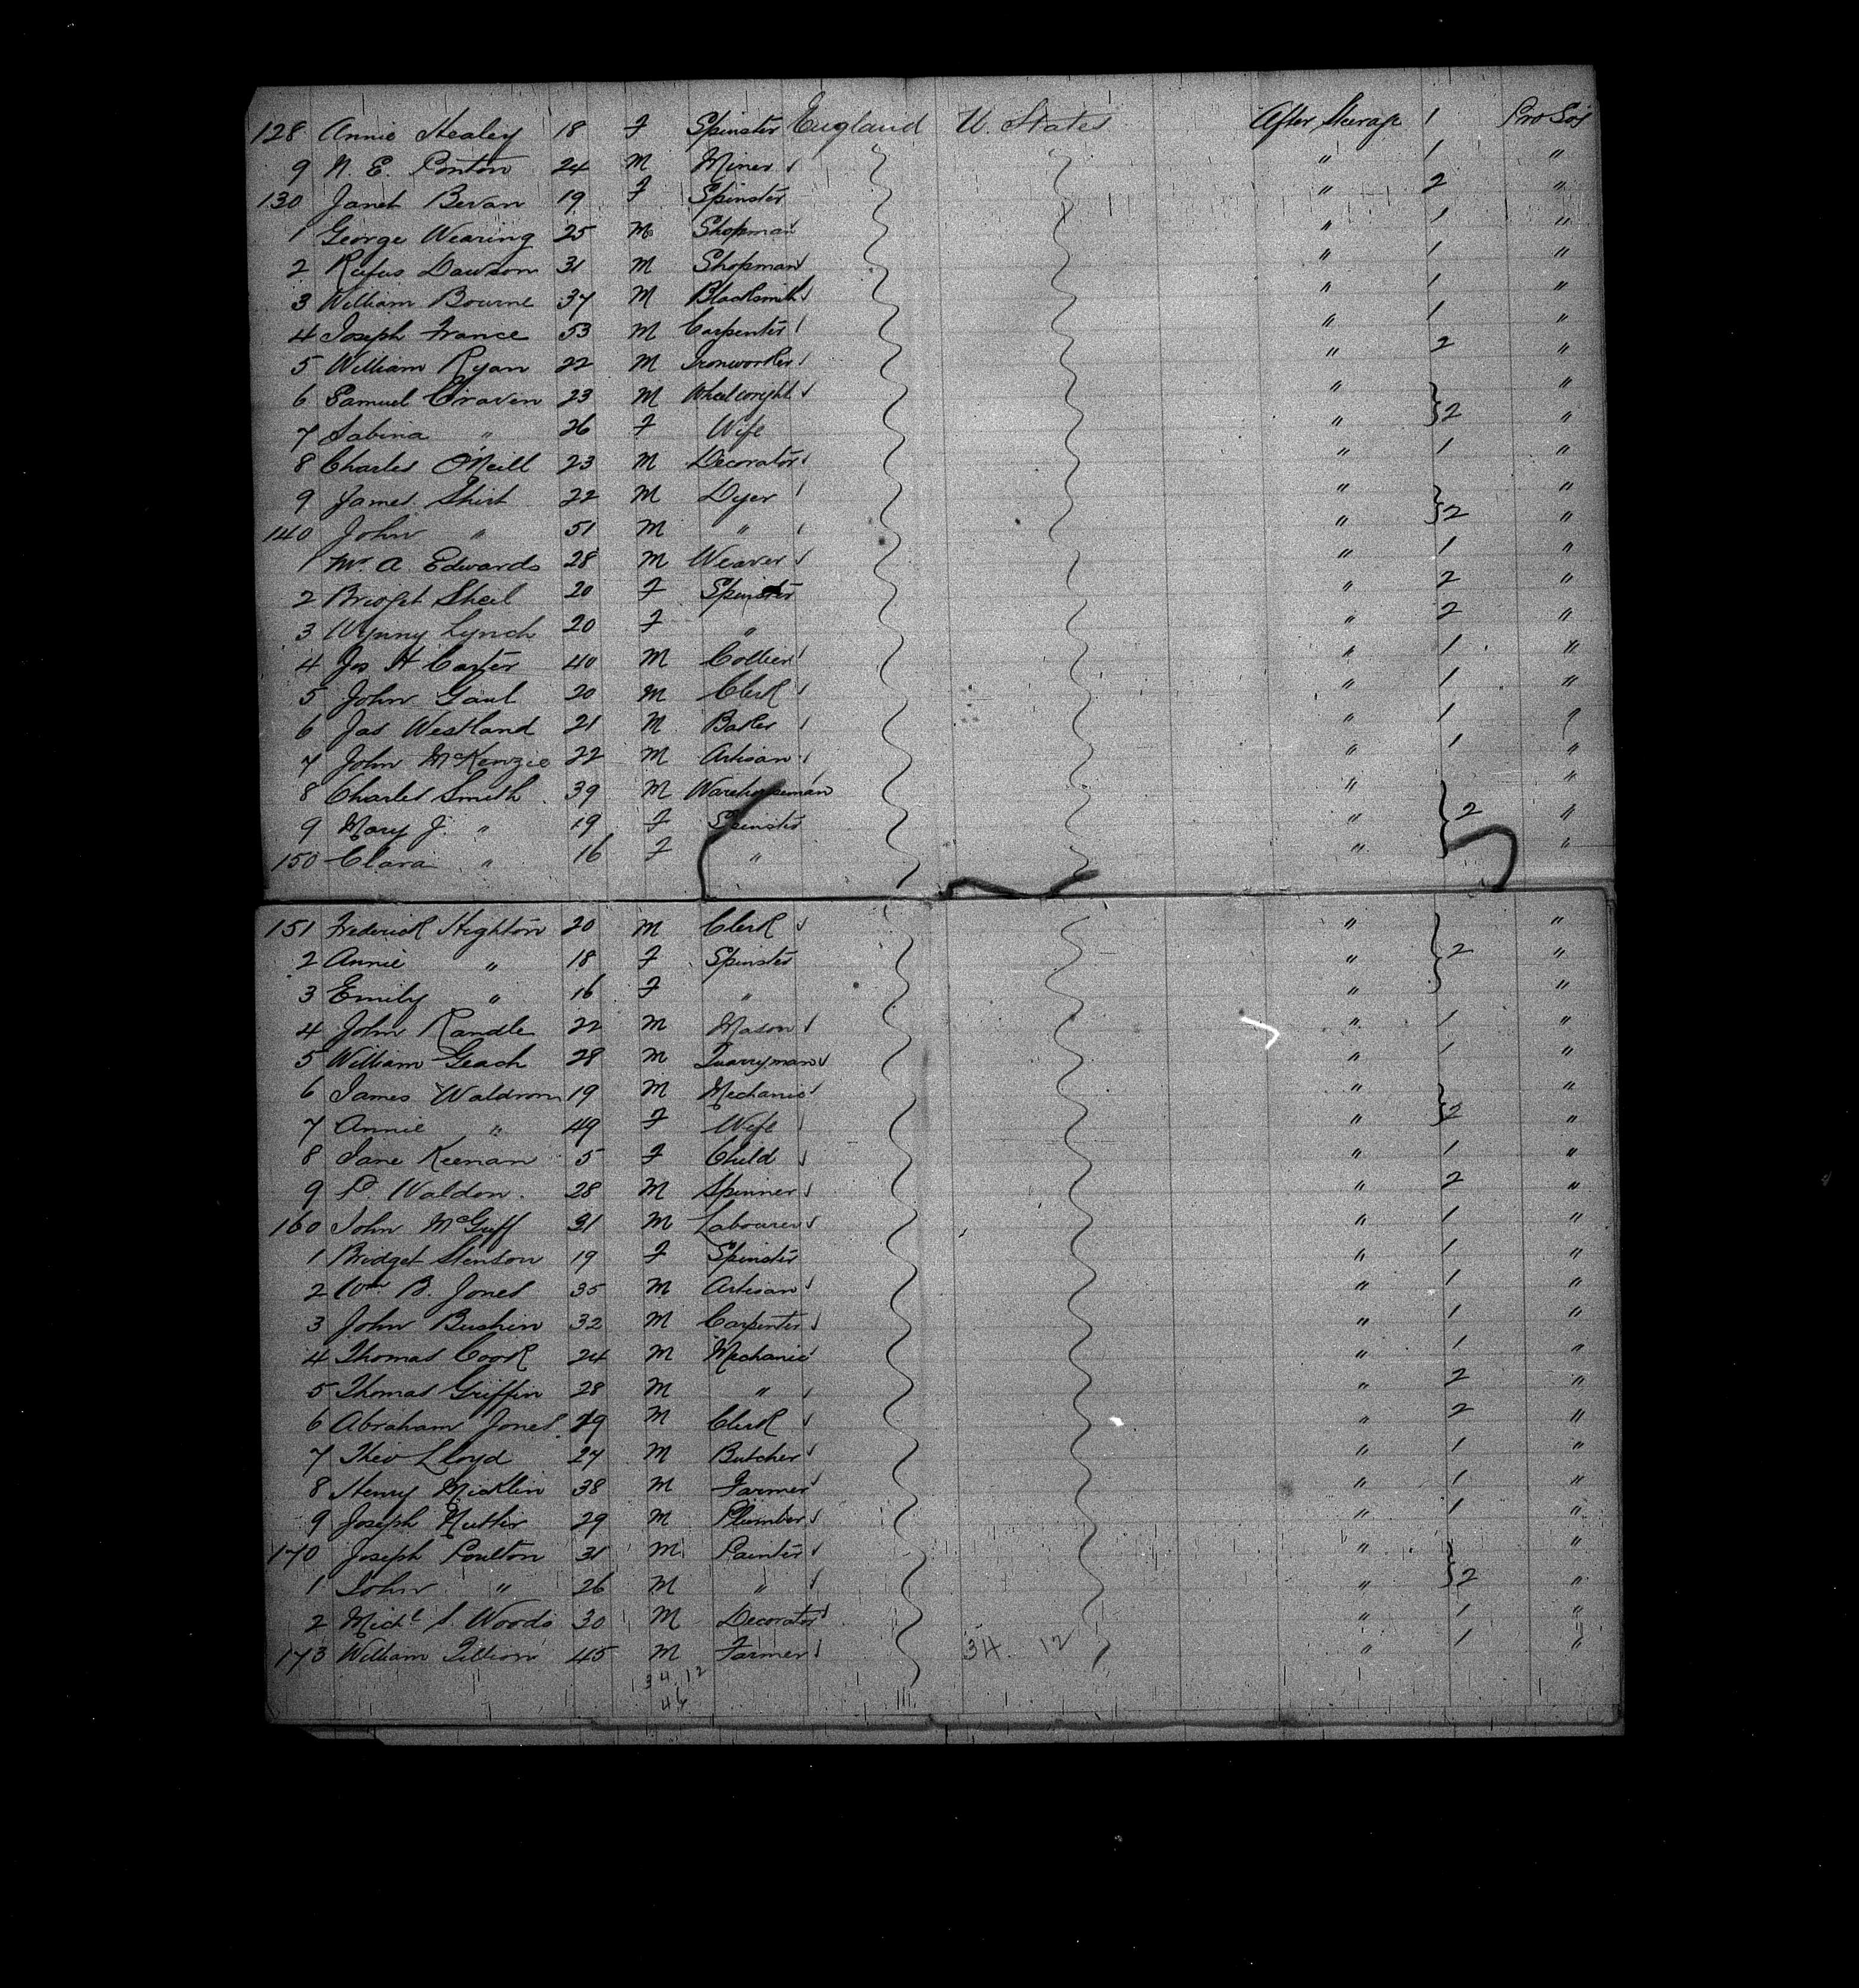 128 Annie Healey 18 F Spinster England U. States After Steerage 1 Pro Soj
9 N. E. Ponton 24 M Miner " 1 "
130 Janet Bevan 19 F Spinster " 2 "
1 George Wearing 25 M Shopman " 1 "
2 Rufus Dawson 31 M Shopman " 1 "
3 William Bourne 37 M Blacksmith " 1 "
4 Joseph France 53 M Carpenter " 1 "
5 William Ryan 22 M Ironworker " 2 "
6 Samuel Craven 23 M Wheelwright " "
7 Sabina " 26 F Wife " 2 "
8 Charles O'Neill 23 M Decorator " 1 "
9 James Shirt 22 M Dyer " "
140 John " 51 M " " 2 "
1 Mr A. Edwards 28 M Weaver " 1 "
2 Bridget Sheil 20 F Spinster " 2 "
3 Wynny Lynch 20 F " " 2 "
4 Jos H Carter 40 M Collier " 1 "
5 John Gaul 20 M Clerk " 1 "
6 Jas Westland 21 M Baker " 1 "
7 John McKenzie 22 M Artisan " 1 "
8 Charles Smith 39 M Warehouseman " "
9 Mary J. " 19 F Spinster " 2 "
150 Clara " 16 F " " "
151 Frederick Highton 20 M Clerk " "
2 Annie " 18 F Spinster " 2 "
3 Emily " 16 F " " "
4 John Randle 22 M Mason " 1 "
5 William Geach 28 M Quarryman " 1 "
6 James Waldron 19 M Mechanic " "
7 Annie " 49 F Wife " 2 "
8 Jane Keenan 5 F Child " 1 "
9 P. Waldon 28 M Spinner " 2 "
160 John McGuff 31 M Labourer " 1 "
1 Bridget Stenson 19 F Spinster " 1 "
2 Wm B. Jones 35 M Artisan " 1 "
3 John Bushin 32 M Carpenter " 1 "
4 Thomas Cook 24 M Mechanic " 1 "
5 Thomas Griffin 28 M " " 2 "
6 Abraham Jones 29 M Clerk " 2 "
7 Theo Lloyd 27 M Butcher " 1 "
8 Henry Micklin 38 M Farmer " 1 "
9 Joseph Nutter 29 M Plumber " 1 "
170 Joseph Poulton 31 M Painter " "
1 John " 26 M " " 2 "
2 Michl S. Woods 30 M Decorator " 1 "
173 William Tillion 45 M Farmer 34 12 " 1 "
34.12
46